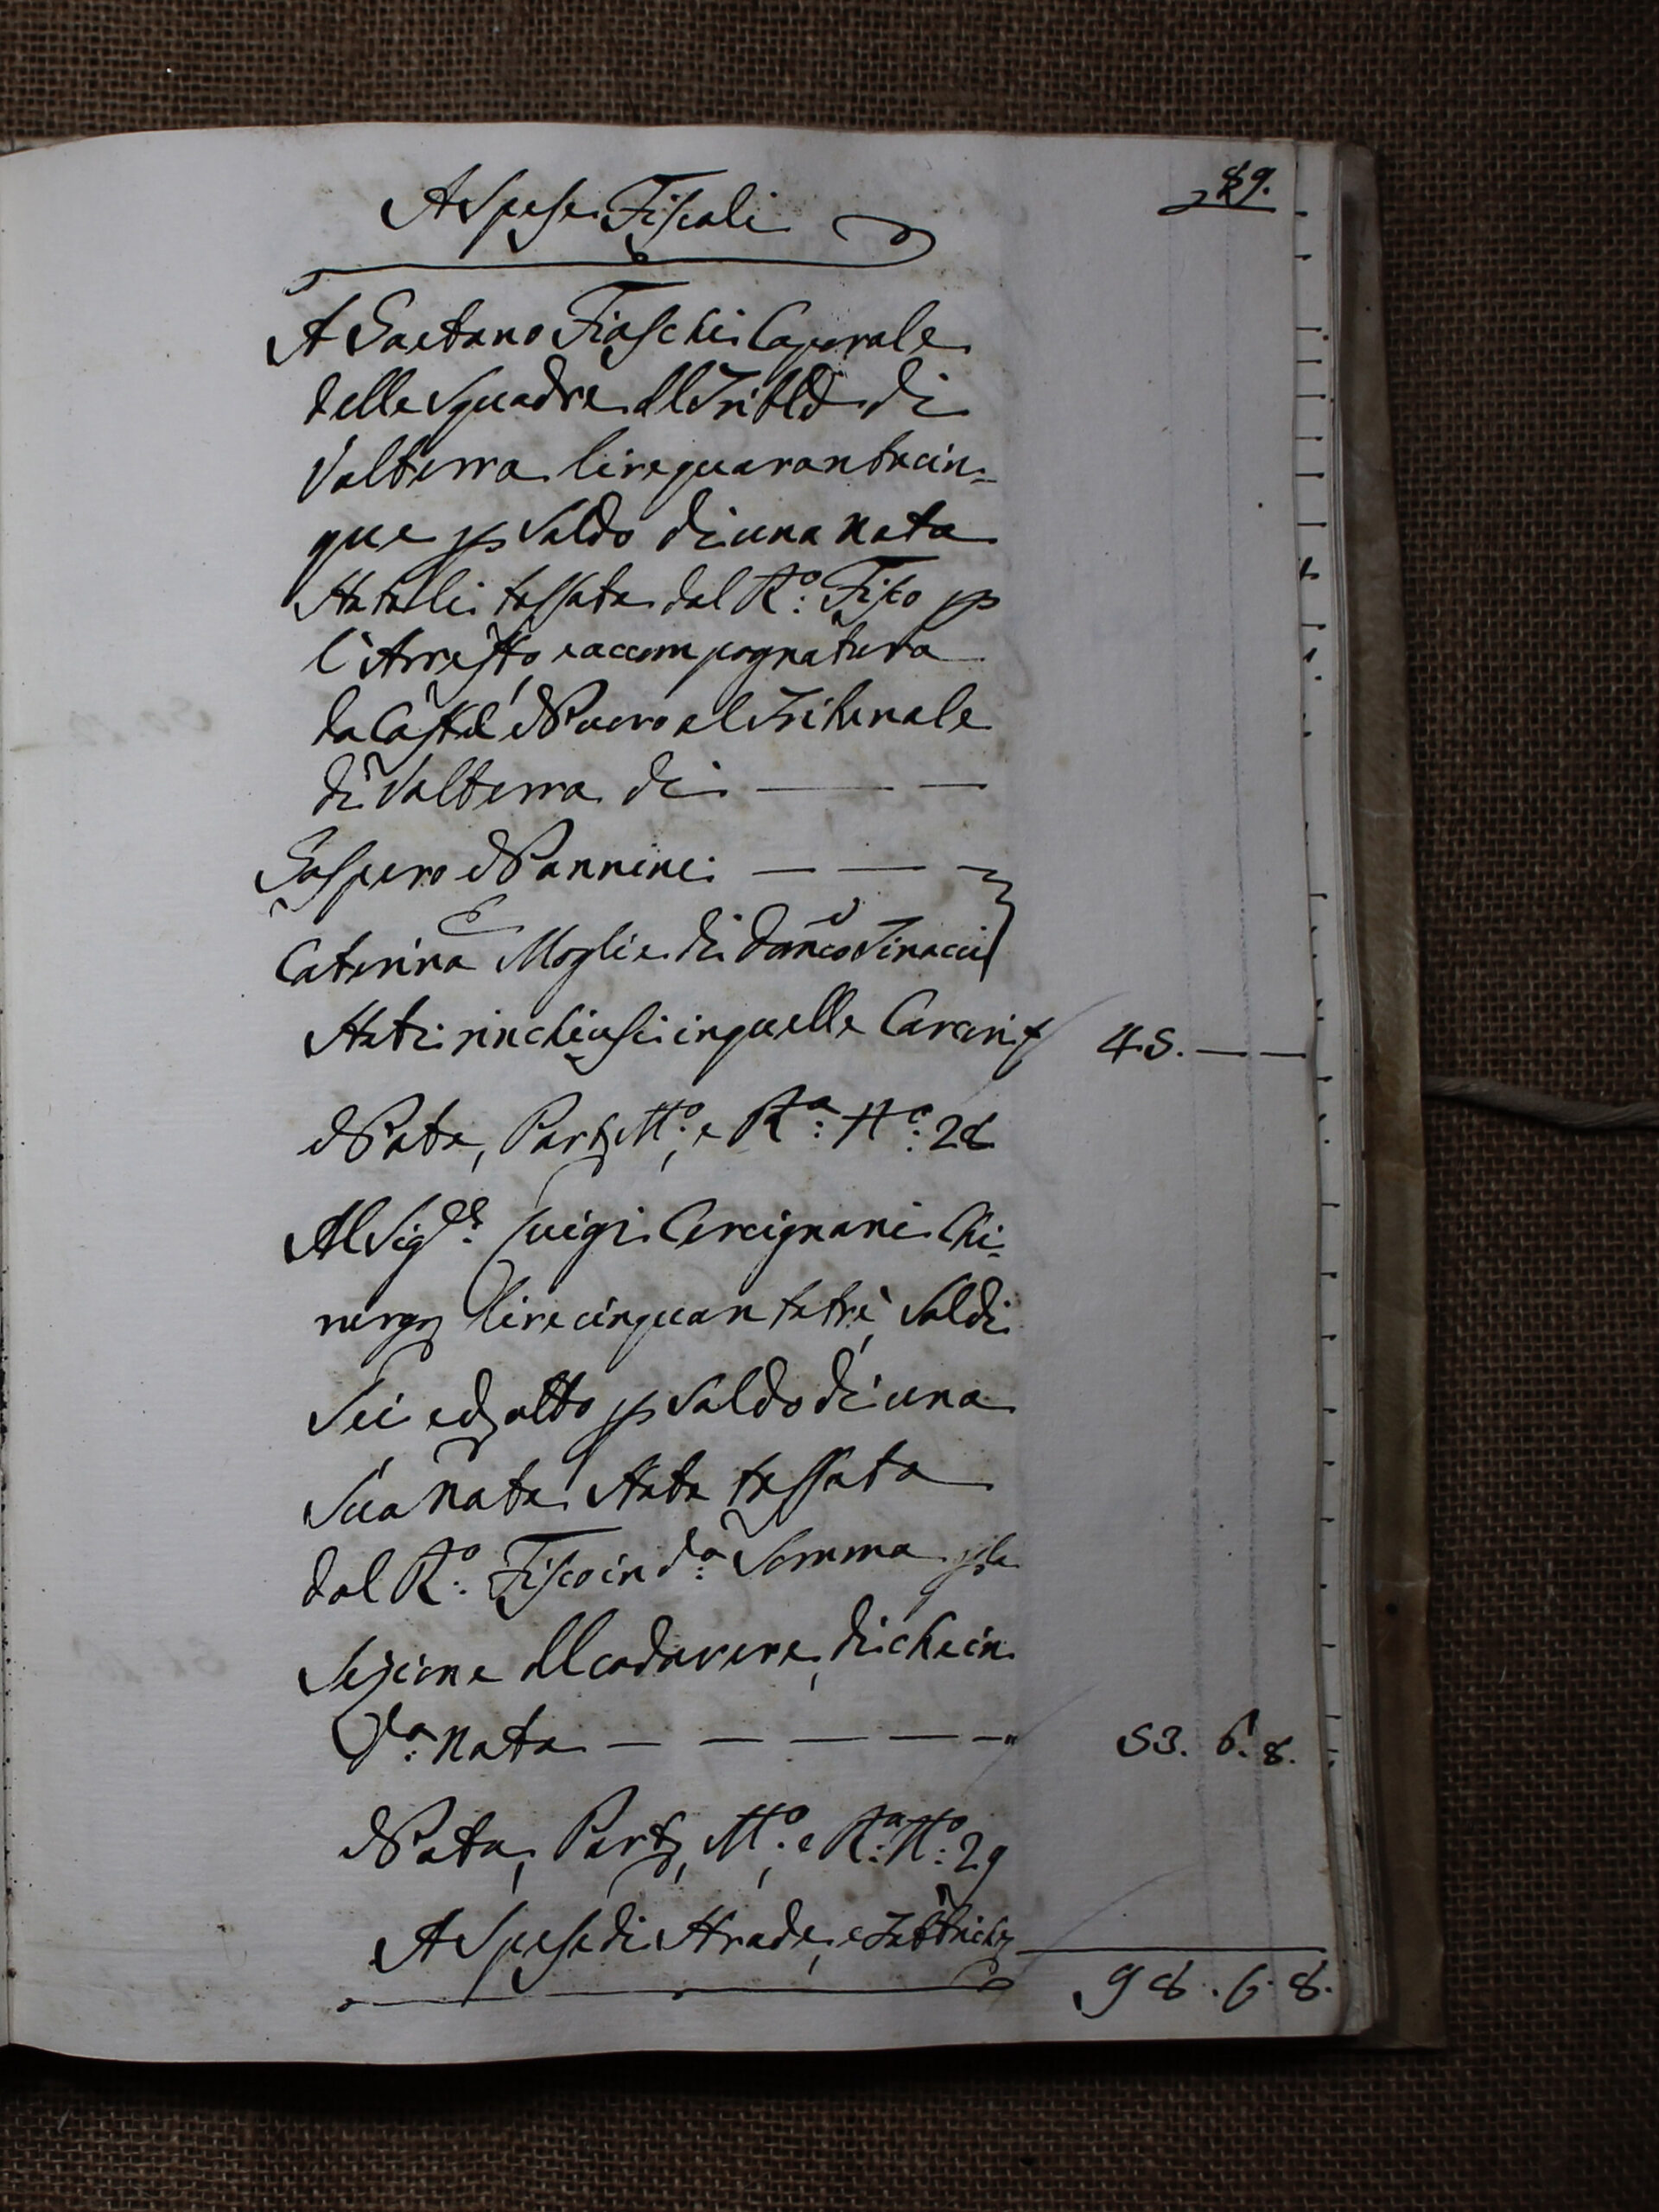 89.
A Spese Fiscali
A Gaetano Fiaschi Caporale
delle Squadre del Trible di
Volterra lire quarantacin-
que p Saldo di una nota
Statali tassata dal R.o Fisco p
l'Arresto, e accompagnatura
da Castel Nuovo al Tribunale
di Volterra di — — —
Gaspero Nannini — — —
E
Caterina Moglie di Domco Tinacci
Stati rinchiusi in quelle Carceri 45. — —
Nota, Parto, M.o, e R.a N.o: 28
Al Sig.re Luigi Cercignani Chi-
rurgo lire cinquantatrè, Soldi
Sei ed otto p Saldo di una
Sua nota Stata tassata
dal R.o Fisco in d.a Somma p la
Sezione del cadavere, di che in
d.a nota — — — — — 53. 6. 8.
Nota, Parto, M.o, e R.a N.o: 29
A Spese di Strade, e Fabbriche
98. 6. 8.